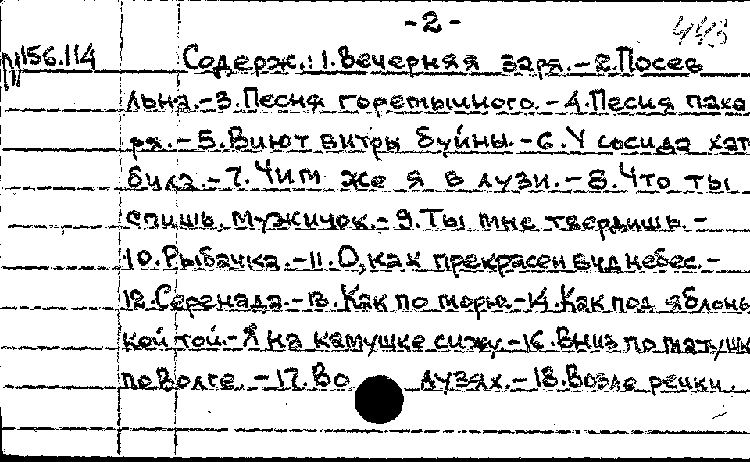 -2-
443
156.114 Содерж.: 1.Вечерняя заря.-2.Посев
льна.-3.Песня горемычного.-4.Песня паха
ря.-5.Виют витры буйны.-6.У сосида хат
била.-7.Чим же я в лузи.-8.Что ты
спишь, мужичок.-9.Ты мне твердишь.-
10.Рыбачка.-11.О, как прекрасен вид небес.-
12.Серенада.-13.Как по морю.-14.Как под яблонь
кой той.-Я на камушке сижу.-16.Вниз по матушк
по Волге.-17.Во лузях.-18.Возле речки.